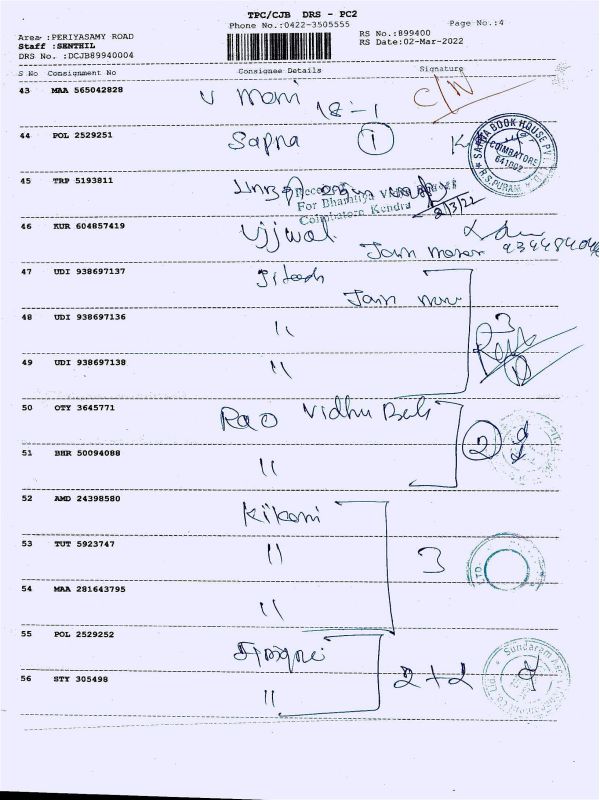 TPC/CJB DRS - PC2
Phone No.:0422-3505555
Page No.:4
Area :PERIYASAMY ROAD
Staff :SENTHIL
DRS No. :DCJB89940004
RS No.:899400
RS Date:02-Mar-2022
S No Consignment No Consignee Details Signature
43 MAA 565042828 V Moni 18-1 C/N
44 POL 2529251 Sapna 1
SAPNA BOOK HOUSE PVT. COIMBATORE 641002 R.S.PURAM
45 TRP 5193811
For Bharatiya
Coimbatore Kendra 2/3/22
46 KUR 604857419 Ujjwal
Jain
47 UDI 938697137 Jitesh
Jain
48 UDI 938697136 " 3
49 UDI 938697138 "
50 OTY 3645771 Rao Vidhu 2
51 BHR 50094088 "
52 AMD 24398580 Kikani
53 TUT 5923747 " 3
LTD.
54 MAA 281643795 "
55 POL 2529252
Sundaram
56 STY 305498 " 2+2